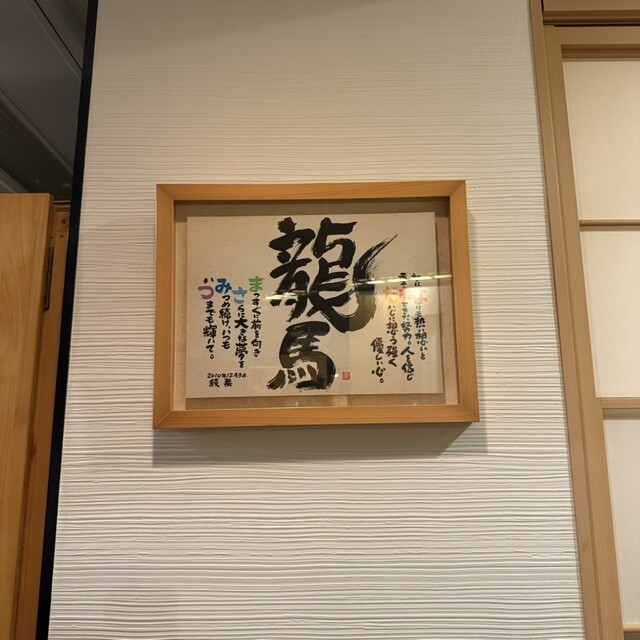 熱い想いと
きた努力。人を信じ
だいじに想う強く
優しい心。
龍馬
まっすぐに前を向き
さらに大きな夢を
みつめ続け、いつも
いつまでも輝いて。
2010年12月